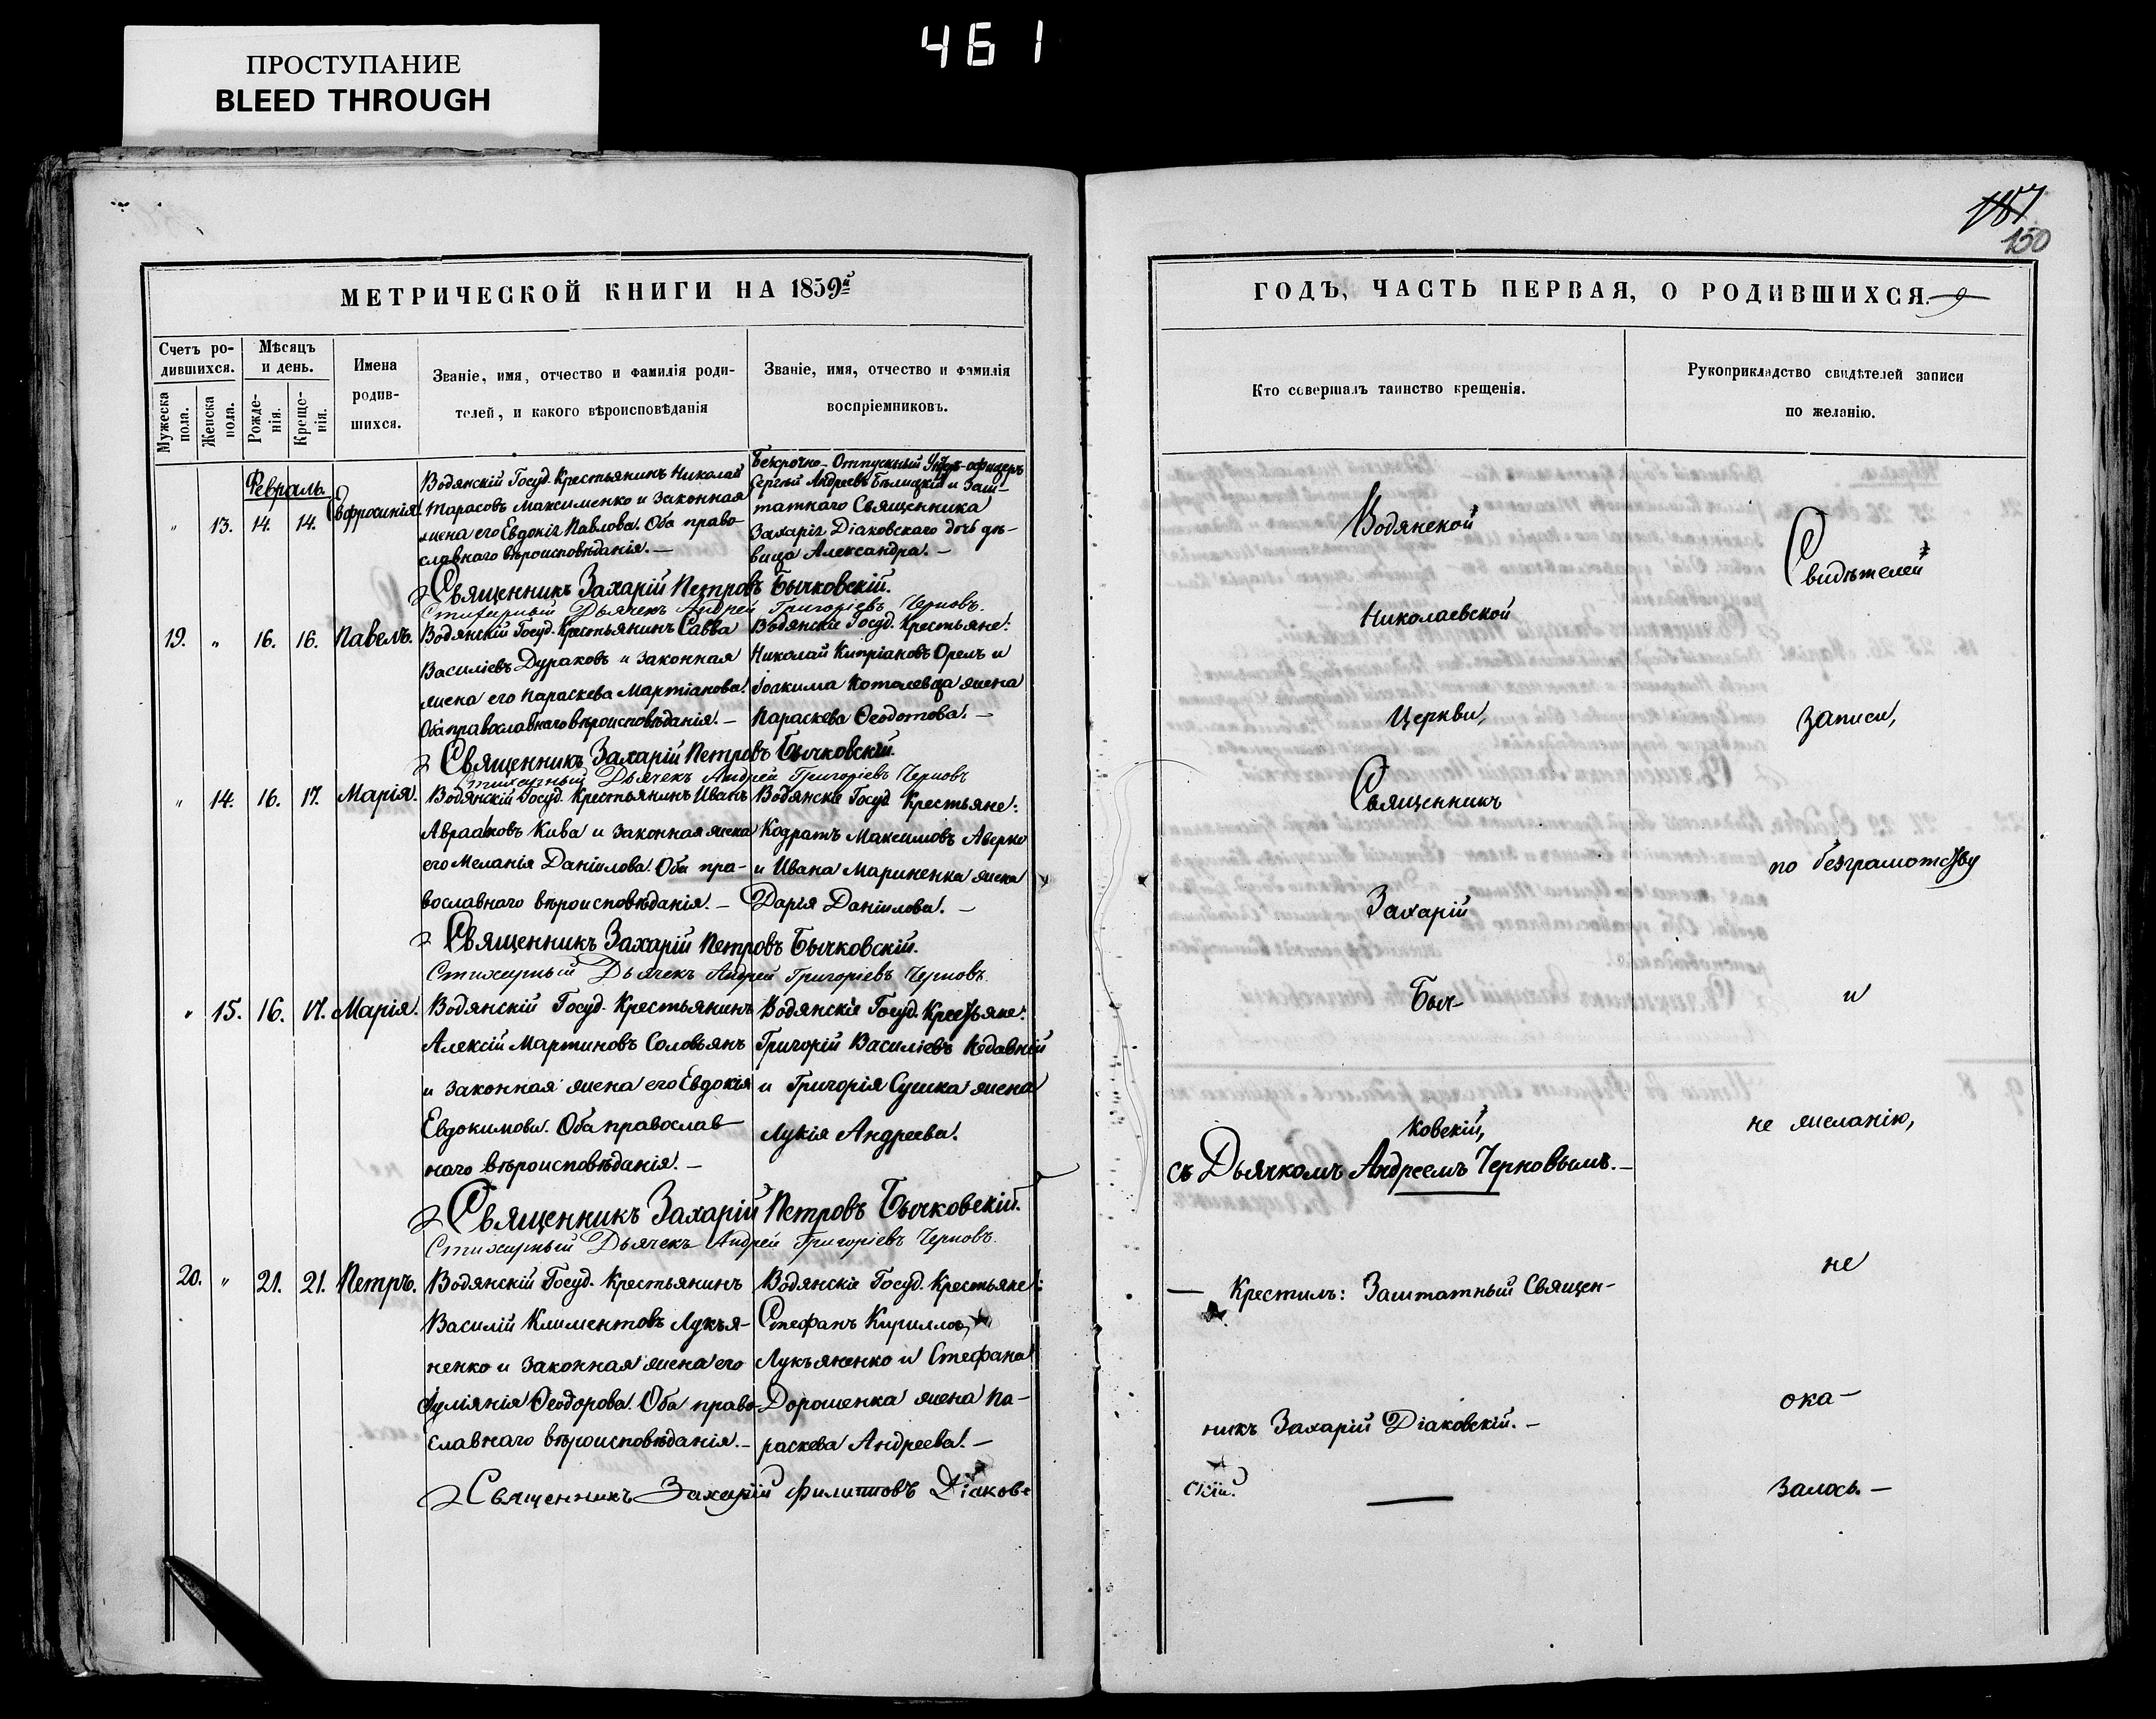 461
ПРОСТУПАНИЕ
BLEED THROUGH
МЕТРИЧЕСКОЙ КНИГИ НА 1859й
Счетъ ро-
дившихся.
Мужеска
пола.
Женска
пола.
Мѣсяцъ
и день.
Рожде-
нія.
Креще-
нія.
Имена
родив-
шихся.
Званіе, имя, отчество и фамилія роди-
телей, и какого вѣроисповѣданія
Званіе, имя, отчество и фамилія
воспріемниковъ.
Февраль.
" 13. 14. 14. Евфросинія.
Водянскій Госуд. Крестьянинъ Николай
Тарасовъ Максименко и законная
жена его Евдокія Павлова. Оба право-
славнаго вѣроисповѣданія. —
Безсрочно-Отпускный Унтеръ-офицеръ
Сергѣй Андреевъ Бѣлицкій и Заш-
татнаго Священника
Захарія Діаковскаго дочь дѣ-
вица Александра. —
Священникъ Захарій Петровъ Бычковскій.
Стихарный Дьячекъ Андрей Григоріевъ Черновъ.
19. " 16. 16. Павелъ.
Водянскій Госуд. Крестьянинъ Савва
Василіевъ Дураковъ и законная
жена его Параскева Мартіанова.
Оба православнаго вѣроисповѣданія. —
Водянскіе Госуд. Крестьяне:
Николай Кипріановъ Орелъ и
Іоакима Котолевца жена
Параскева Ѳеодотова. —
Священникъ Захарій Петровъ Бычковскій.
Стихарный Дьячекъ Андрей Григоріевъ Черновъ
" 14. 16. 17. Марія.
Водянскій Госуд. Крестьянинъ Иванъ
Авраамовъ Кива и законная жена
его Меланія Даніилова. Оба пра-
вославнаго вѣроисповѣданія. —
Водянскіе Госуд. Крестьяне:
Кодратъ Максимовъ Аверко
и Ивана Мариненка жена
Дарія Даніилова. —
Священникъ Захарій Петровъ Бычковскій.
Стихарный Дьячекъ Андрей Григоріевъ Черновъ.
" 15. 16. 17. Марія.
Водянскій Госуд. Крестьянинъ
Алексій Мартиновъ Соловьянъ
и законная жена его Евдокія
Евдокимова. Оба православ
наго вѣроисповѣданія. —
Водянскіе Госуд. Крестьяне:
Григорій Василіевъ Недавній
и Григорія Сушка жена
Лукія Андреева.
Священникъ Захарій Петровъ Бычковскій.
Стихарный Дьячекъ Андрей Григоріевъ Черновъ.
20. " 21. 21. Петръ.
Водянскій Госуд. Крестьянинъ
Василій Климентовъ Лукья-
ненко и законная жена его
Іуліянія Ѳеодорова. Оба право-
славнаго вѣроисповѣданія. —
Водянскіе Госуд. Крестьяне:
Стефанъ Кирилловъ
Лукьяненко и Стефана
Дорошенка жена Па-
раскева Андреева. —
Священникъ Захарій Филипповъ Діаков-
157
150
ГОДЪ, ЧАСТЬ ПЕРВАЯ, О РОДИВШИХСЯ.
Кто совершалъ таинство крещенія.
Рукоприкладство свидѣтелей записи
по желанію.
Водянской
Николаевской
Церкви,
Священникъ
Захарій
Быч-
ковскій,
съ Дьячкомъ Андреемъ Черновымъ. —
— Крестилъ: Заштатный Священ-
никъ Захарій Діаковскій. —
скій.
Свидѣтелей
записи,
по безграмотству
и
не желанію,
не
ока-
залось. —